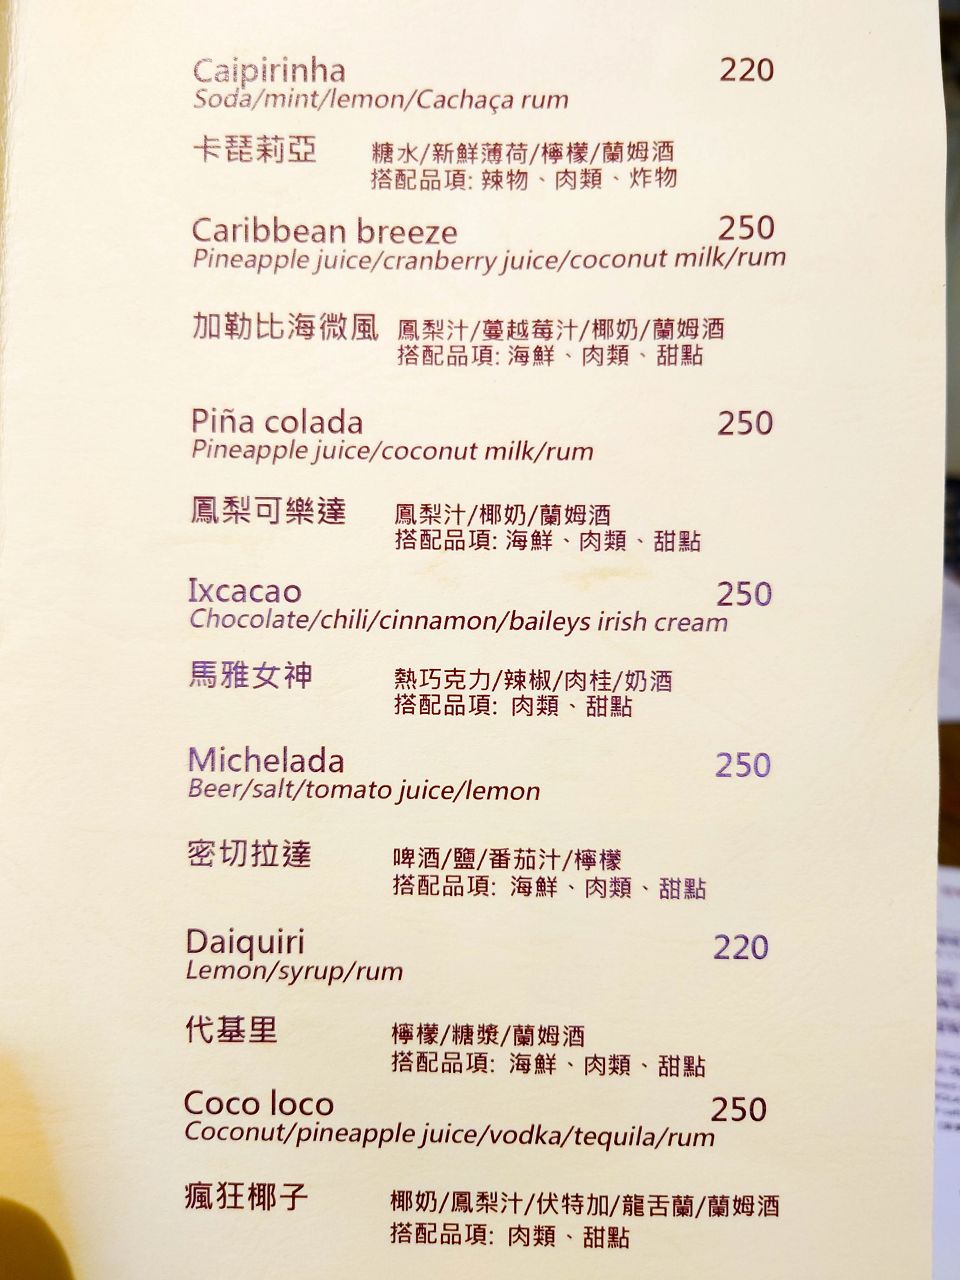 Caipirinha 220
Soda/mint/lemon/Cachaça rum
卡琵莉亞 糖水/新鮮薄荷/檸檬/蘭姆酒
搭配品項: 辣物、肉類、炸物
Caribbean breeze 250
Pineapple juice/cranberry juice/coconut milk/rum
加勒比海微風 鳳梨汁/蔓越莓汁/椰奶/蘭姆酒
搭配品項: 海鮮、肉類、甜點
Piña colada 250
Pineapple juice/coconut milk/rum
鳳梨可樂達 鳳梨汁/椰奶/蘭姆酒
搭配品項: 海鮮、肉類、甜點
Ixcacao 250
Chocolate/chili/cinnamon/baileys irish cream
馬雅女神 熱巧克力/辣椒/肉桂/奶酒
搭配品項: 肉類、甜點
Michelada 250
Beer/salt/tomato juice/lemon
密切拉達 啤酒/鹽/番茄汁/檸檬
搭配品項: 海鮮、肉類、甜點
Daiquiri 220
Lemon/syrup/rum
代基里 檸檬/糖漿/蘭姆酒
搭配品項: 海鮮、肉類、甜點
Coco loco 250
Coconut/pineapple juice/vodka/tequila/rum
瘋狂椰子 椰奶/鳳梨汁/伏特加/龍舌蘭/蘭姆酒
搭配品項: 肉類、甜點